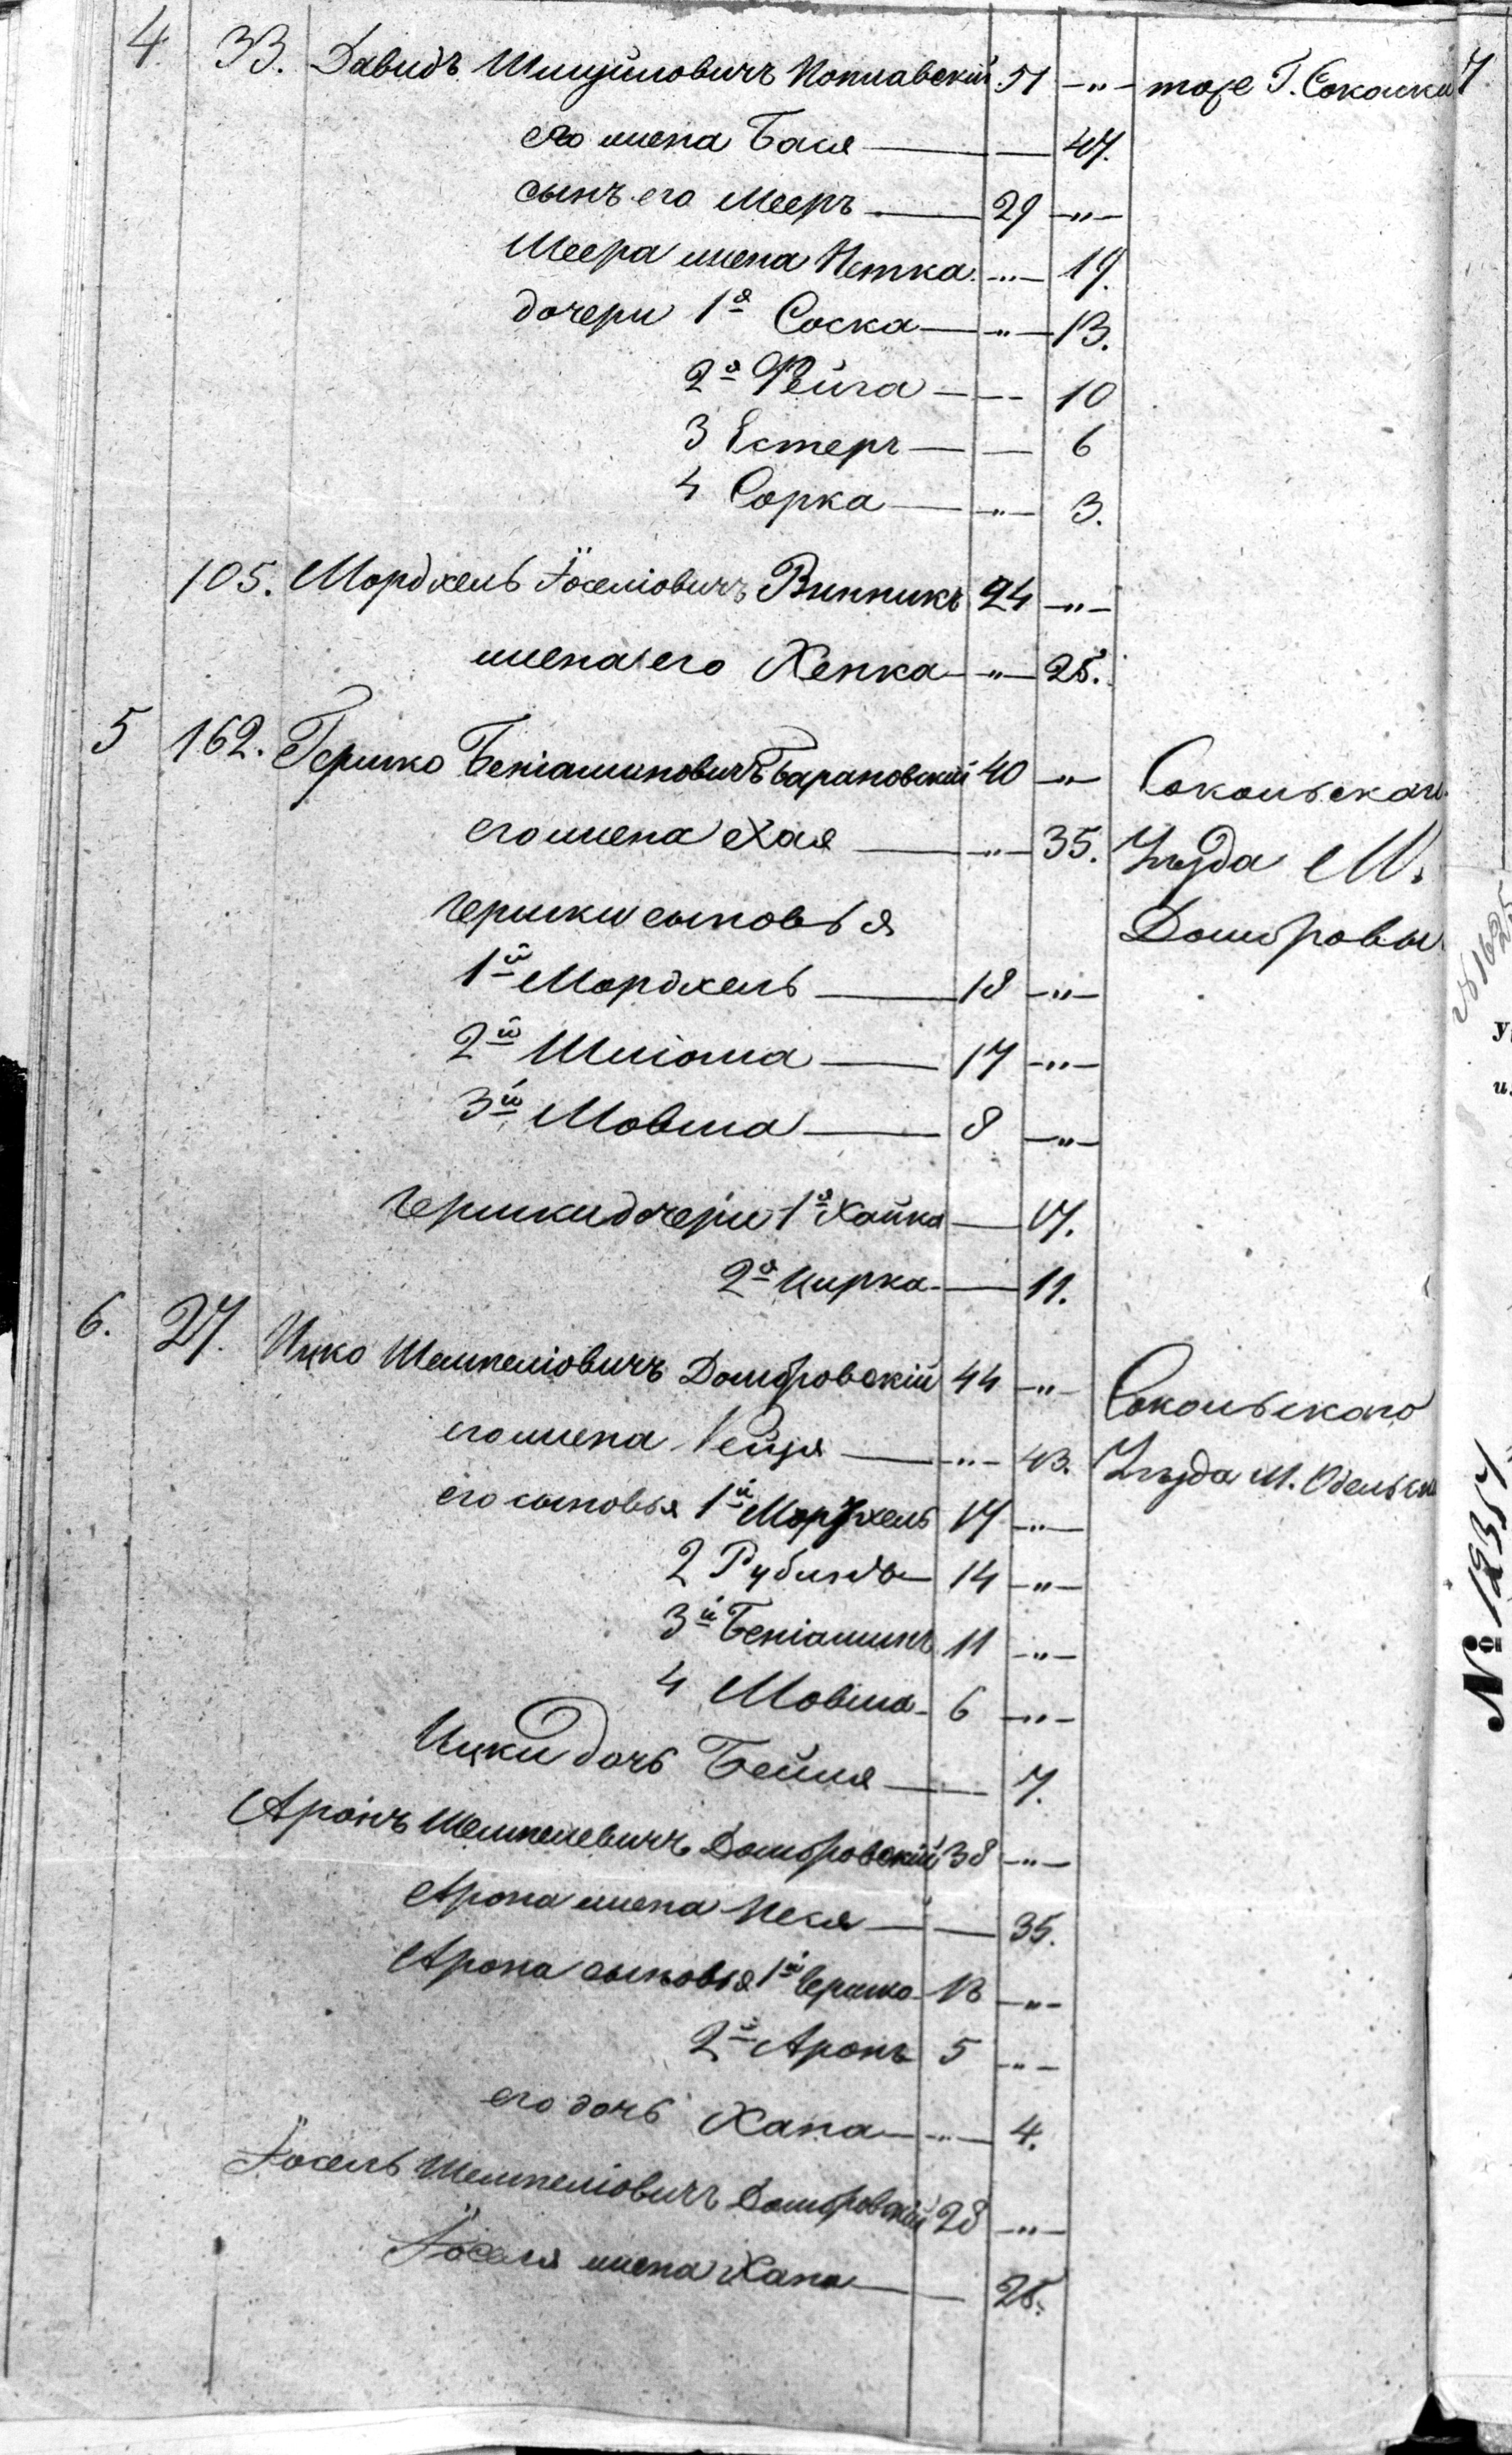 4. 33. Давидъ Шмуйловичъ Поплавскій 51 —"— тоже Г. Соколки 7
его жена Бася — 47.
сынъ его Мееръ — 29 —"—
Меера жена Итка —"— 19.
дочери 1я Соска —"— 13.
2я Фейга — 10
3 Естеръ — 6
4 Сорка —"— 3.
105. Мордхель Іоселіовичъ Винникъ 24 —"—
жена его Хенка —"— 25.
5 162. Гершко Беніаминовичъ Барановскій 40 —"— Сокольскаго
его жена Хая —"— 35. Уѣзда М.
Гершки сыновья Домбровы
1й Мордхель — 18 —"—
2й Шліома — 17 —"—
3й Мовша — 8 —"—
Гершки дочери 1я Хайка — 17.
2я Цирка — 11.
6. 27. Ицко Шемшеліовичъ Домбровскій 44 —"— Сокольскаго
его жена —"— 43. Уѣзда М. Одельск
его сыновья 1й Мордхель 17 —"—
2 Рубинъ 14 —"—
3й Беніаминъ 11 —"—
4 Мовша 6 —"—
Ицки дочь Бейля — 7.
Аронъ Домбровскій 38 —"—
Арона жена Песя — 35.
Арона сыновья 1й Гершко 13 —"—
2й Аронъ 5 —"—
его дочь Хана —"— 4.
Іосель Домбровскій 28 —"—
Іоселя жена Хана — 25.
№ 1625
№ 1235